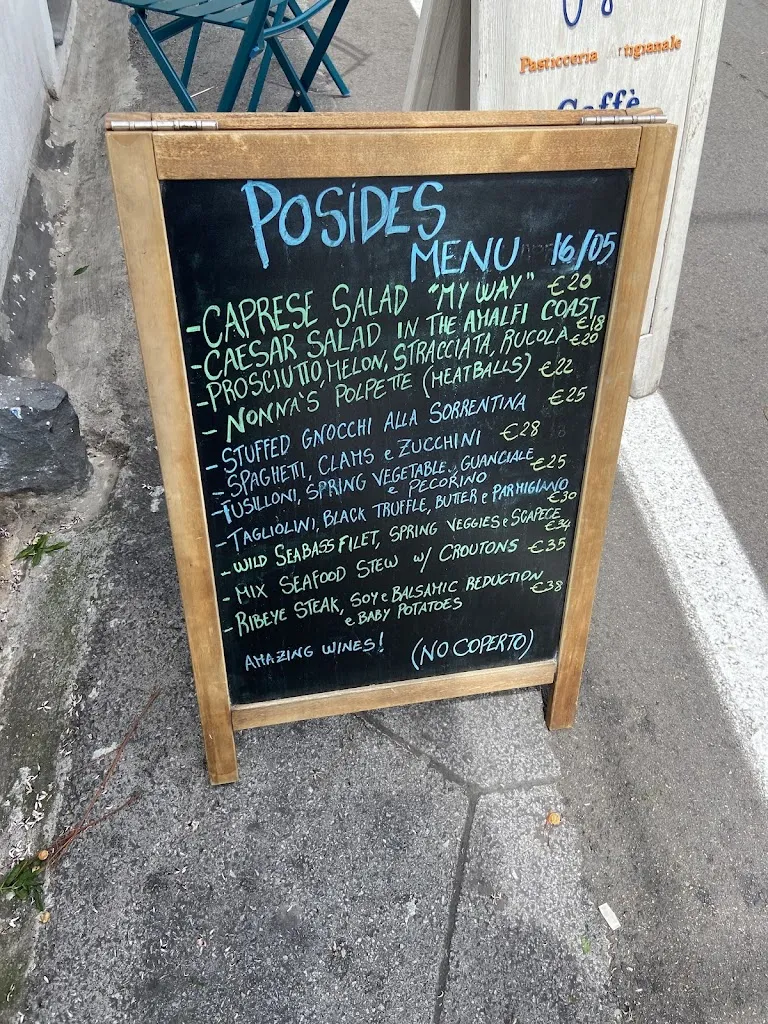 Pasticceria Artigianale
Caffè
POSIDES
MENU 16/05
- CAPRESE SALAD "MY WAY" €20
- CAESAR SALAD IN THE AMALFI COAST €18
- PROSCIUTTO, MELON, STRACCIATA, RUCOLA €20
- NONNA'S POLPETTE (MEATBALLS) €22
- STUFFED GNOCCHI ALLA SORRENTINA €25
- SPAGHETTI, CLAMS e ZUCCHINI €28
- FUSILLONI, SPRING VEGETABLE, GUANCIALE
e PECORINO €25
- TAGLIOLINI, BLACK TRUFFLE, BUTTER e PARMIGIANO €30
- WILD SEABASS FILET, SPRING VEGGIES e SCAPECE €34
- MIX SEAFOOD STEW w/ CROUTONS €35
- RIBEYE STEAK, SOY e BALSAMIC REDUCTION
e BABY POTATOES €38
AMAZING WINES! (NO COPERTO)